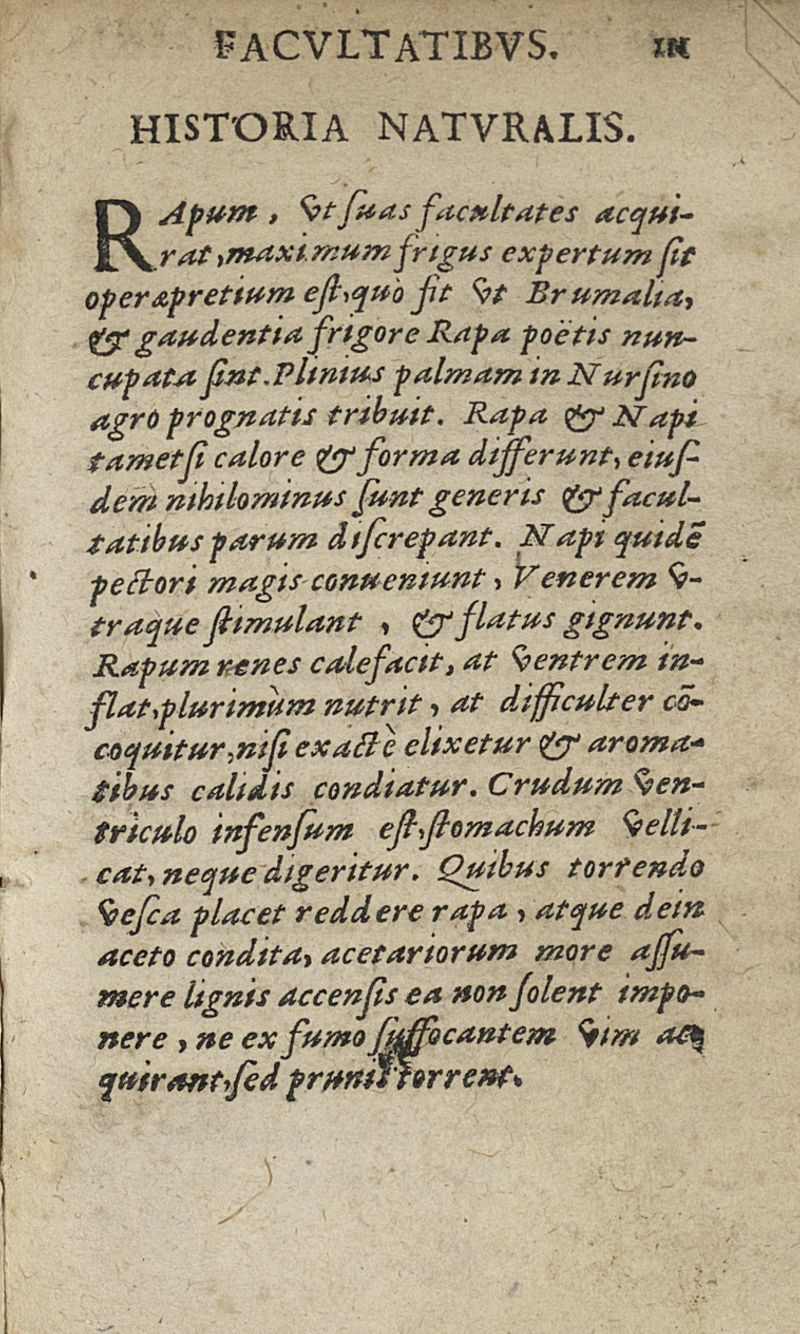 FACVLTATIBVS.
HISTORIA NATVRALIS.
RApum, vt ſuas facultates acqui-
rat, maximum frigus expertum ſit
operæpretium eſt, quò fit vt Brumalia,
& gaudentia frigore Rapa poëtis nun-
cupata ſint. Plinius palmam in Nurſino
agro prognatis tribuit. Rapa & Napi
tametſi calore & forma differunt, eiuſ-
dem nihilominus ſunt generis & facul-
tatibus parum diſcrepant. Napi quidē
pectori magis conueniunt, Venerem v-
traque ſtimulant, & flatus gignunt.
Rapum renes calefacit, at ventrem in-
flat, plurimùm nutrit, at difficulter cō-
coquitur, niſi exactè elixetur & aroma-
tibus calidis condiatur. Crudum ven-
triculo infenſum eſt, ſtomachum velli-
cat, neque digeritur. Quibus torrendo
veſca placet reddere rapa, atque dein
aceto condita, acetariorum more aſſu-
mere lignis accenſis ea non ſolent impo-
nere, ne ex fumo ſuffocantem vim ac-
quirant, ſed prunis torrent.